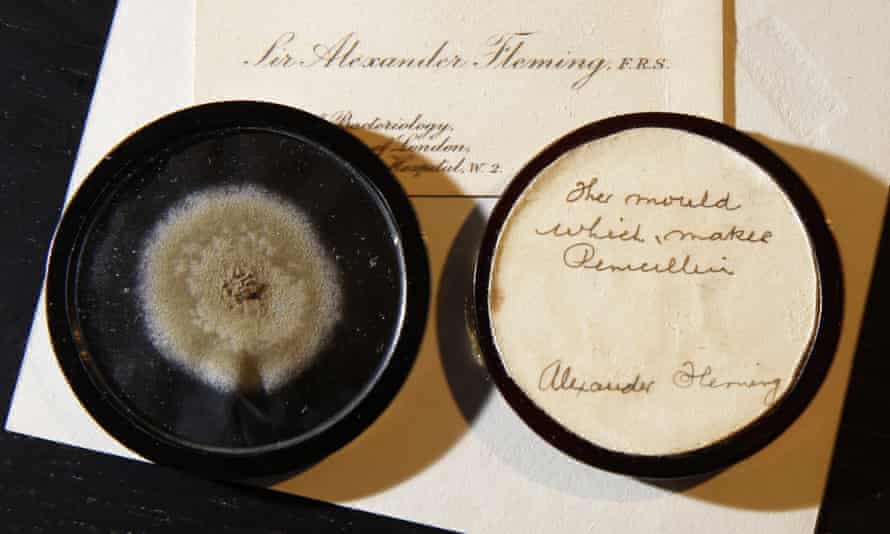 Sir Alexander Fleming, F.R.S.
Bacteriology,
of London,
Hospital, W. 2.
The mould
which makes
Penicillin
Alexander Fleming